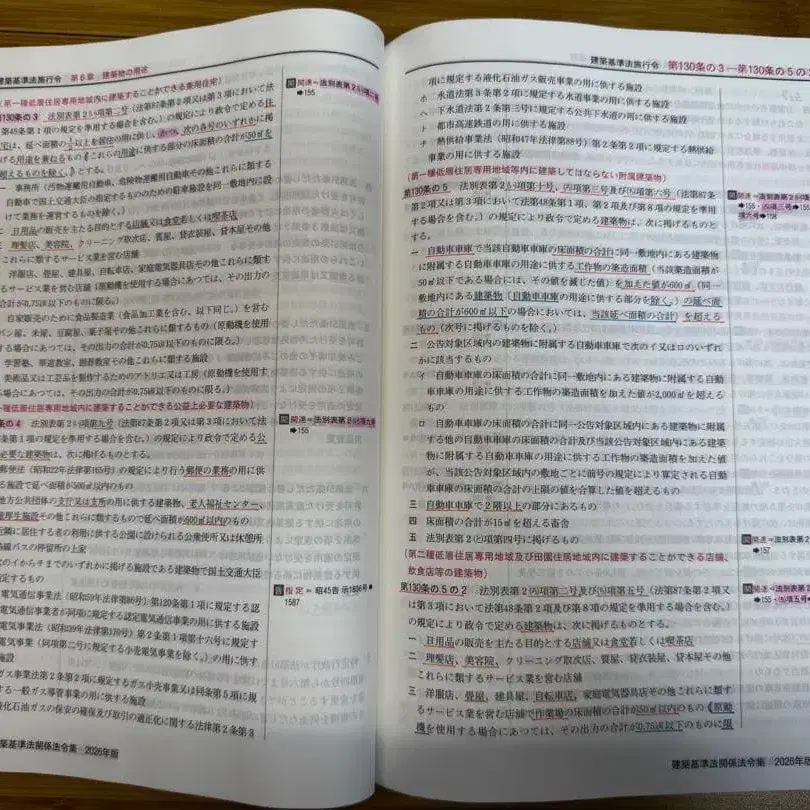 建築基準法施行令 第6章 建築物の用途
(第一種低層住居専用地域内に建築することができる兼用住宅)
130条の3 法別表第2(い)項第二号(法第87条第2項又は第3項において法
第48条第1項の規定を準用する場合を含む。)の規定により政令で定める住
宅は、延べ面積の1/2以上を居住の用に供し、かつ、次の各号のいずれかに掲
げる用途を兼ねるもの(これらの用途に供する部分の床面積の合計が50㎡を
超えるものを除く。)とする。
一 事務所(汚物運搬用自動車、危険物運搬用自動車その他これらに類する
自動車で国土交通大臣の指定するもののための駐車施設を同一敷地内に設
けて業務を運営するものを除く。)
日用品の販売を主たる目的とする店舗又は食堂若しくは喫茶店
理髪店、美容院、クリーニング取次店、質屋、貸衣装屋、貸本屋その他
これらに類するサービス業を営む店舗
洋服店、畳屋、建具屋、自転車店、家庭電気器具店その他これらに類する
サービス業を営む店舗(原動機を使用する場合にあつては、その出力の
合計が0.75kW以下のものに限る。)
自家販売のために食品製造業(食品加工業を含む。以下同じ。)を営む
パン屋、米屋、豆腐屋、菓子屋その他これらに類するもの(原動機を使用
する場合にあつては、その出力の合計が0.75kW以下のものに限る。)
学習塾、華道教室、囲碁教室その他これらに類する施設
美術品又は工芸品を製作するためのアトリエ又は工房(原動機を使用す
る場合にあつては、その出力の合計が0.75kW以下のものに限る。)
一種低層住居専用地域内に建築することができる公益上必要な建築物)
条の4 法別表第2(い)項第九号(法第87条第2項又は第3項において法
条第1項の規定を準用する場合を含む。)の規定により政令で定める公
必要な建築物は、次に掲げるものとする。
郵便法(昭和22年法律第165号)の規定により行う郵便の業務の用に供
する施設で延べ面積が500㎡以内のもの
地方公共団体の支庁又は支所の用に供する建築物、老人福祉センター、
童厚生施設その他これらに類するもので延べ面積が600㎡以内のもの
近隣に居住する者の利用に供する公園に設けられる公衆便所又は休憩所
路線バスの停留所の上家
次のイからチまでのいずれかに掲げる施設である建築物で国土交通大臣
指定するもの
電気通信事業法(昭和59年法律第86号)第120条第1項に規定する認
電気通信事業者が同項に規定する認定電気通信事業の用に供する施設
電気事業法(昭和39年法律第170号)第2条第1項第十六号に規定す
電気事業(同項第二号に規定する小売電気事業を除く。)の用に供する
施設
ガス事業法第2条第2項に規定するガス小売事業又は同条第5項に規
する一般ガス導管事業の用に供する施設
液化石油ガスの保安の確保及び取引の適正化に関する法律第2条第3
関連=法別表第2(い)項二号
➡155
関連=法別表第2(い)項九号
➡155
指定=昭45告示1836号➡
1587
建築基準法関係法令集 2026年版
建築基準法施行令 第130条の3―第130条の5の2
項に規定する液化石油ガス販売事業の用に供する施設
ホ 水道法第3条第2項に規定する水道事業の用に供する施設
ヘ 下水道法第2条第三号に規定する公共下水道の用に供する施設
ト 都市高速鉄道の用に供する施設
チ 熱供給事業法(昭和47年法律第88号)第2条第2項に規定する熱供給
事業の用に供する施設
(第一種低層住居専用地域等内に建築してはならない附属建築物)
第130条の5 法別表第2(い)項第十号、(ろ)項第三号及び(ち)項第六号(法第87条
第2項又は第3項において法第48条第1項、第2項及び第8項の規定を準用
する場合を含む。)の規定により政令で定める建築物は、次に掲げるものと
する。
一 自動車車庫で当該自動車車庫の床面積の合計に同一敷地内にある建築物
に附属する自動車車庫の用途に供する工作物の築造面積(当該築造面積が
50㎡以下である場合には、その値を減じた値)を加えた値が600㎡(同一
敷地内にある建築物(自動車車庫の用途に供する部分を除く。)の延べ面
積の合計が600㎡以下の場合においては、当該延べ面積の合計)を超える
もの(次号に掲げるものを除く。)
二 公告対象区域内の建築物に附属する自動車車庫で次のイ又はロのいずれ
かに該当するもの
イ 自動車車庫の床面積の合計に同一敷地内にある建築物に附属する自動
車車庫の用途に供する工作物の築造面積を加えた値が2,000㎡を超える
もの
ロ 自動車車庫の床面積の合計に同一公告対象区域内にある建築物に附属
する他の自動車車庫の床面積の合計及び当該公告対象区域内にある建築
物に附属する自動車車庫の用途に供する工作物の築造面積を加えた値
が、当該公告対象区域内の敷地ごとに前号の規定により算定される自動
車車庫の床面積の合計の上限の値を合算した値を超えるもの
三 自動車車庫で2階以上の部分にあるもの
四 床面積の合計が15㎡を超える畜舎
五 法別表第2(と)項第四号に掲げるもの
(第二種低層住居専用地域及び田園住居地域内に建築することができる店舗、
飲食店等の建築物)
第130条の5の2 法別表第2(ろ)項第二号及び(ち)項第五号(法第87条第2項又
は第3項において法第48条第2項及び第8項の規定を準用する場合を含む。)
の規定により政令で定める建築物は、次に掲げるものとする。
一 日用品の販売を主たる目的とする店舗又は食堂若しくは喫茶店
二 理髪店、美容院、クリーニング取次店、質屋、貸衣装屋、貸本屋その他
これらに類するサービス業を営む店舗
三 洋服店、畳屋、建具屋、自転車店、家庭電気器具店その他これらに類す
るサービス業を営む店舗で作業場の床面積の合計が50㎡以内のもの(原動
機を使用する場合にあつては、その出力の合計が0.75kW以下のものに限
関連=法別表第2
➡157
関連=法別表第2
建築基準法関係法令集 2026年版